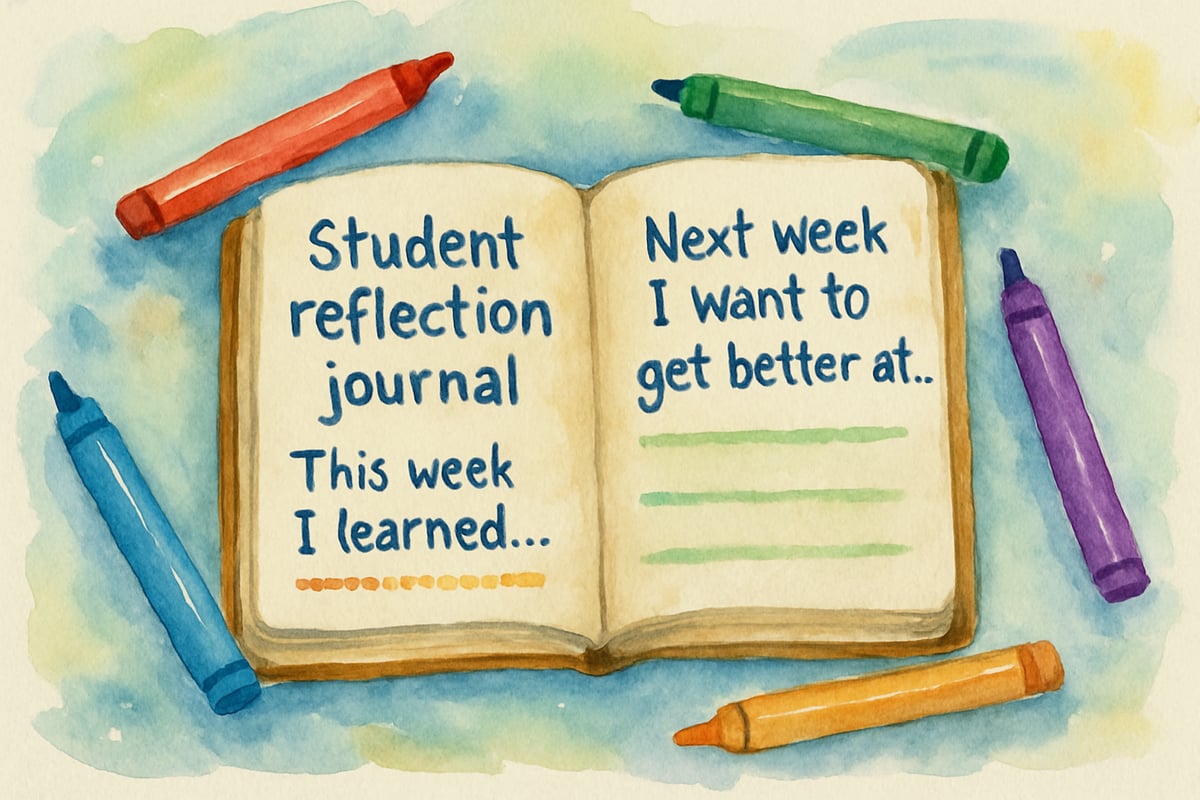 Student
reflection
journal
This week
I learned...
Next week
I want to
get better at..